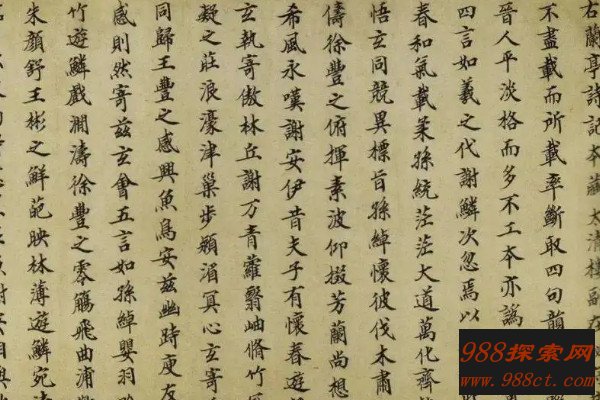 右蘭亭詩記本藏太清樓副在
不盡載而所載率斷取四句韻
晉人平淡格而多不工本亦譌
四言如羲之代謝鱗次忽焉以
春和氣載柔孫統茫茫大道萬化齊
悟玄同競異標旨孫綽懷彼伐木肅
儔徐豐之俯揮素波仰掇芳蘭尚想
希風永嘆謝安伊昔夫子有懷春遊
玄執寄傲林丘謝万青蘿翳岫脩竹
凝之莊浪濠津巢步潁湄冥心玄寄
同歸王豐之感興魚鳥安茲幽時庾友
感則然寄茲玄會五言如孫綽嬰羽
竹遊鱗戲澗濤徐豐之零觴飛曲浦
朱顏舒王彬之鮮葩映林薄遊鱗宛清
988探索网
www.988ct.com